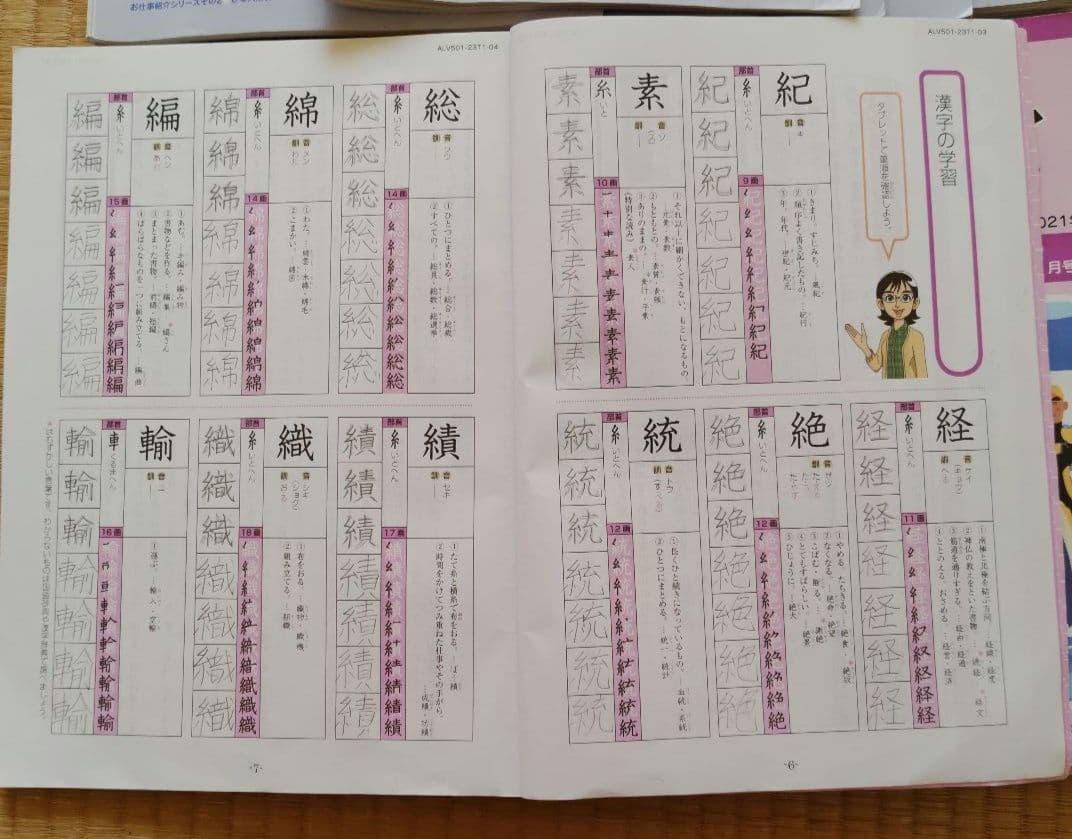 お仕事紹介シリーズその2
ALV501-23T1-03
漢字の学習
タブレットで筆順を確認しよう。
紀
音 キ
訓 ―
部首 糸 いとへん
9画
①きまり。すじみち。…風紀
②順序よく書き記したもの。…紀行
③年。年代。…世紀・紀元
紀紀紀紀紀紀紀
素
音 ソ
部首 糸 いと
10画
①それ以上に細かくできない、もとになるもの。
…元素・素数
②もともとの。…素質・素顔
③ありのままの。…素行・平素
(特別な読み)…素人
素素素素素素素
経
音 ケイ
(キョウ)
訓 へる
部首 糸 いとへん
11画
①南極と北極を結ぶ方向。…経線・経度
②神仏の教えをといた書物。…経文
③筋道を通りすぎる。…経由・経過
④ととのえる。おさめる。…経営・経済
経経経経経経経
絶
音 ゼツ
部首 糸 いとへん
12画
①やめる。たちきる。…絶食
②なくなる。…絶命・絶望
③こばむ。断る。…謝絶
④とてもすばらしい。…絶景
⑤ひじょうに。…絶大
絶絶絶絶絶絶絶
統
音 トウ
訓 (すべる)
部首 糸 いとへん
12画
①長くひと続きになっているもの。…血統・系統
②ひとつにまとめる。…統一・統計
統統統統統統統
-6-
ALV501-23T1-04
総
音 ソウ
訓 ―
部首 糸 いとへん
14画
①ひとつにまとめる。…総合・総裁
②すべての。…総員・総数・総選挙
総総総総総総総
綿
音 メン
訓 わた
部首 糸 いとへん
14画
①わた。…綿雲・木綿・綿毛
②こまかい。…綿密
綿綿綿綿綿綿綿
編
音 ヘン
訓 あむ
部首 糸 いとへん
15画
①あむ。…手編み・編み物
②書物などを作る。…編集
③まとまった書物。…前編・短編
④ばらばらなものを一つに組み立てる。…編曲
編編編編編編編
績
音 セキ
訓 ―
部首 糸 いとへん
17画
①たて糸と横糸で布をおる。
②時間をかけてつみ重ねた仕事やその手がら。
…成績・功績
績績績績績績績
織
音 シキ
(ショク)
訓 おる
部首 糸 いとへん
18画
①布をおる。…織物・織機
②組み立てる。…組織
織織織織織織織
輸
音 ユ
訓 ―
部首 車 くるまへん
16画
①運ぶ。…輸入・空輸
輸輸輸輸輸輸輸
-7-
月号